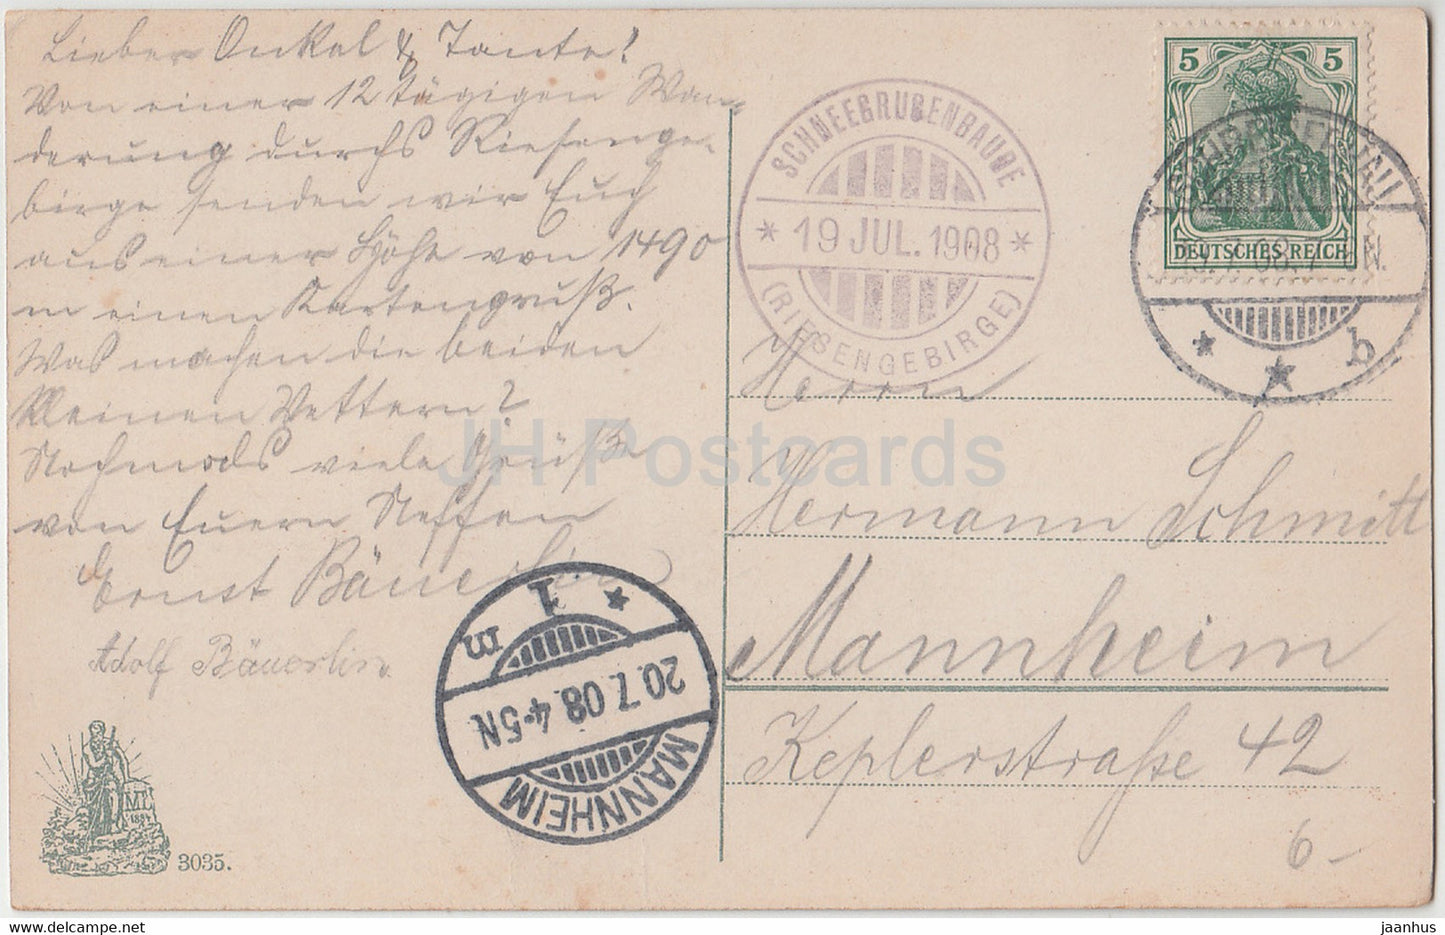 Lieber Onkel & Tante!
Von einer 12 tägigen Wan-
derung durchs Riesenge-
birge senden wir Euch
aus einer Höhe von 1490
m einen Kartengruß.
Was machen die beiden
kleinen Vettern?
Nochmals viele Grüße
von Euern Neffen
Ernst Bäuerlin
Adolf Bäuerlin.
ML
1884
3035.
SCHNEEGRUBENBAUDE
* 19 JUL. 1908 *
(RIESENGEBIRGE)
5 5
DEUTSCHES REICH
b
Herrn
Hermann Schmitt
Mannheim
Keplerstraße 42
6-
MANNHEIM
20.7.08.4-5N
* 1 m
JH Postcards
jaanhus